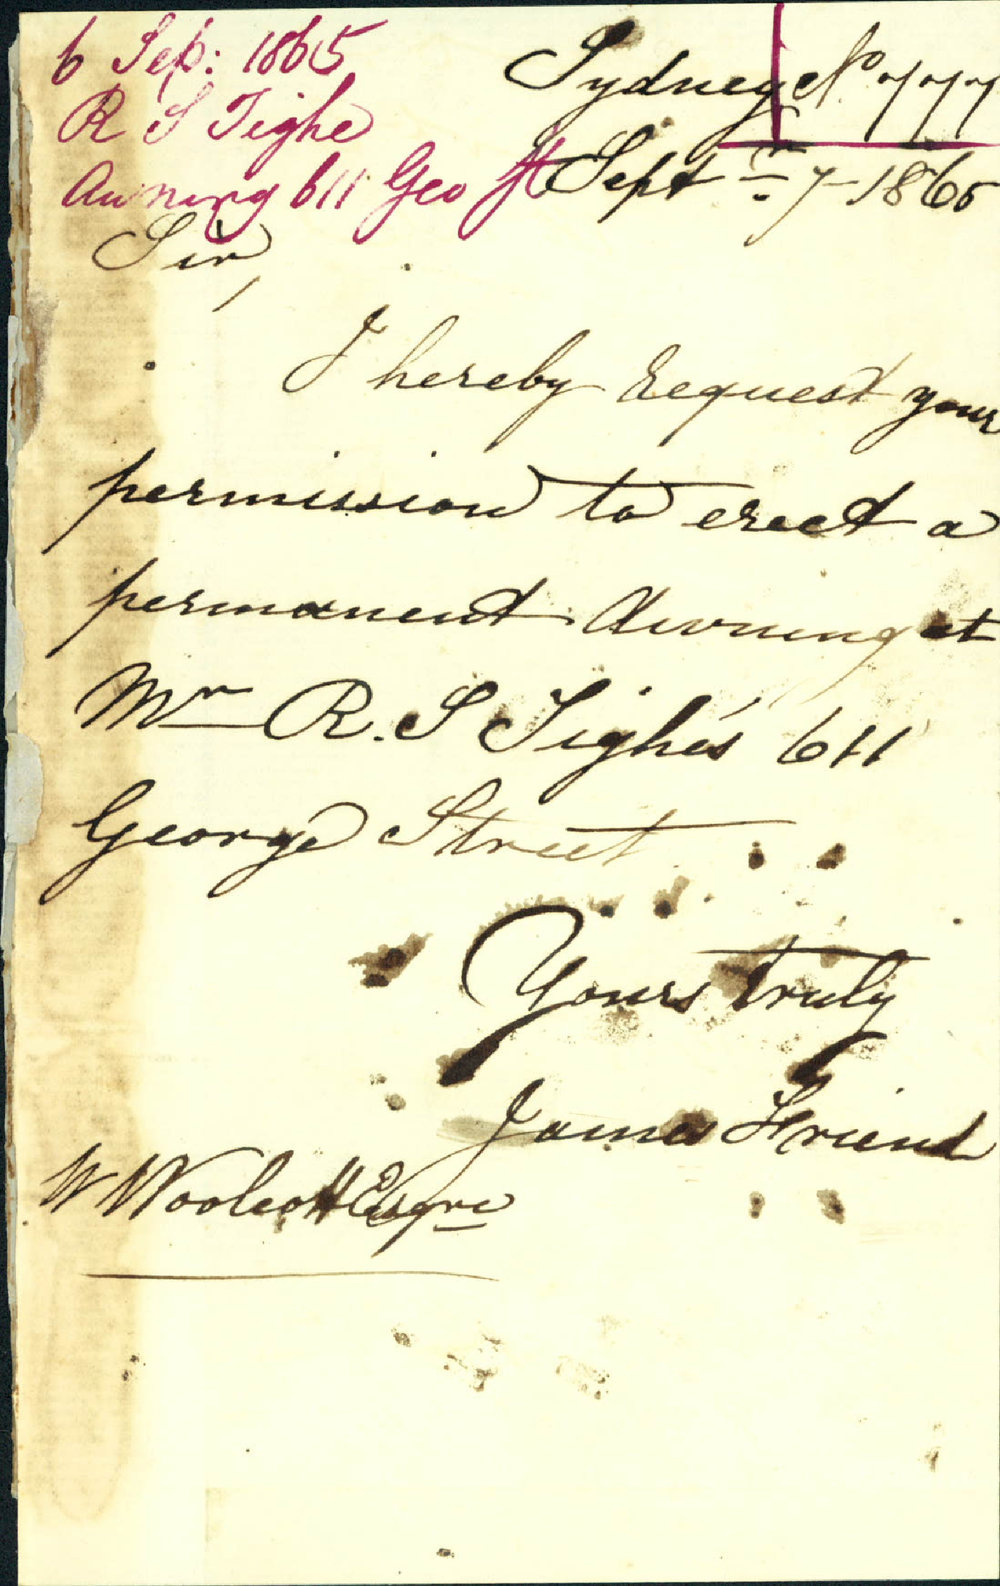 6 Sep: 1865
R S Tighe
Awning 611 Geo St
No 777
Sydney
Sept 7 - 1865
Sir,
I hereby request your
permission to erect a
permanent Awning at
Mr R. S Tighe's 611
George Street
Yours truly
James Friend
W Woolcott Esqre